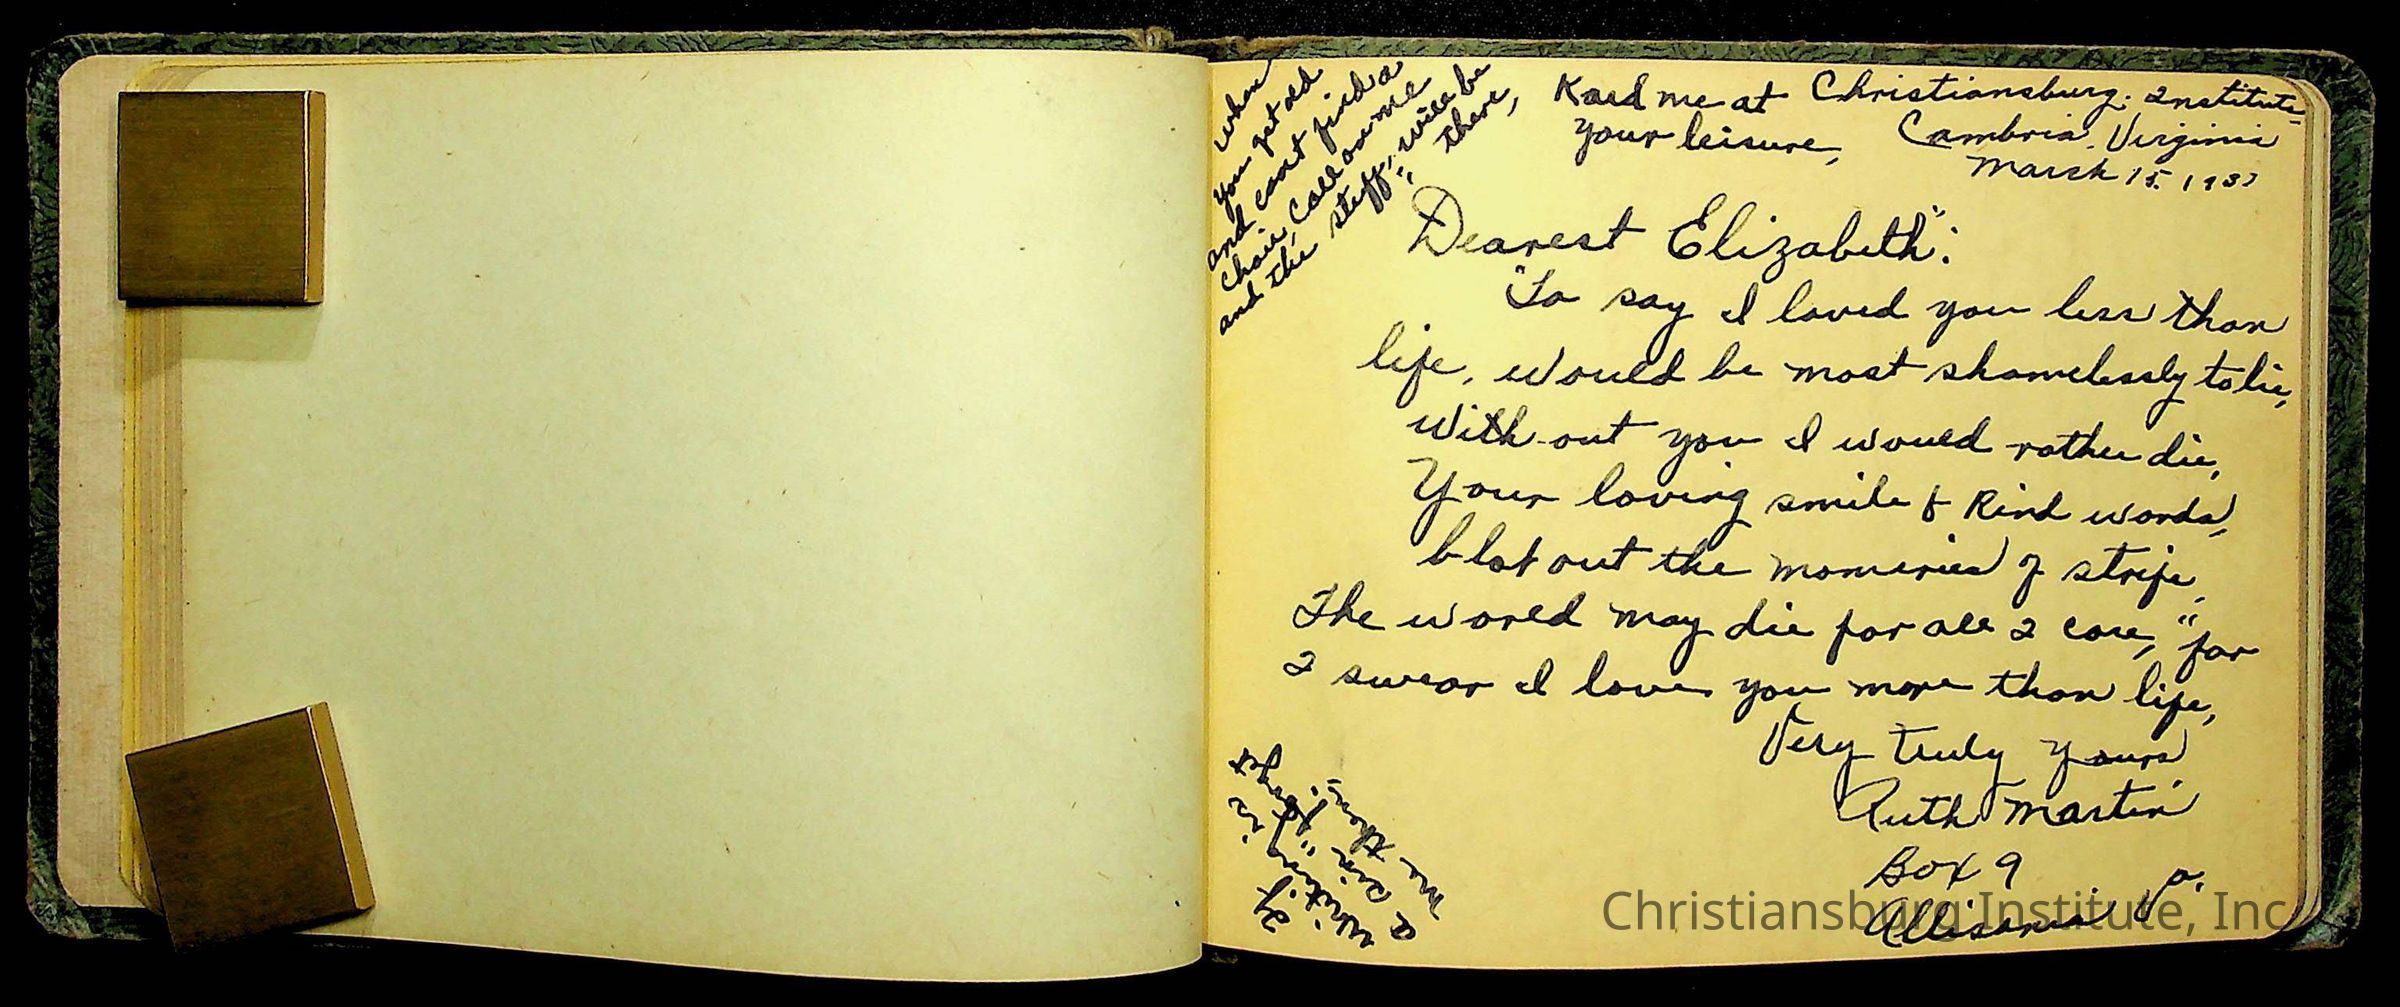 when
you get old
and cant find a
chair, Call on me
and the stuff," will be
" there,
Kard me at
your leisure,
Christiansburg. Institute
Cambria, Virginia
March 15. 1937
Dearest Elizabeth":
"To say I loved you less than
life, would be most shamelessly to lie,
with-out you I would rather die,
Your loving smile & Kind words,
blot out the momeries of strife,
The world may die for all I care," for
I swear I love you more than life,
Very Truly Yours
Ruth Martin
Box 9
Allisonia Va.
If
writing is
a sin "forget
me then,"
Christiansburg Institute, Inc.